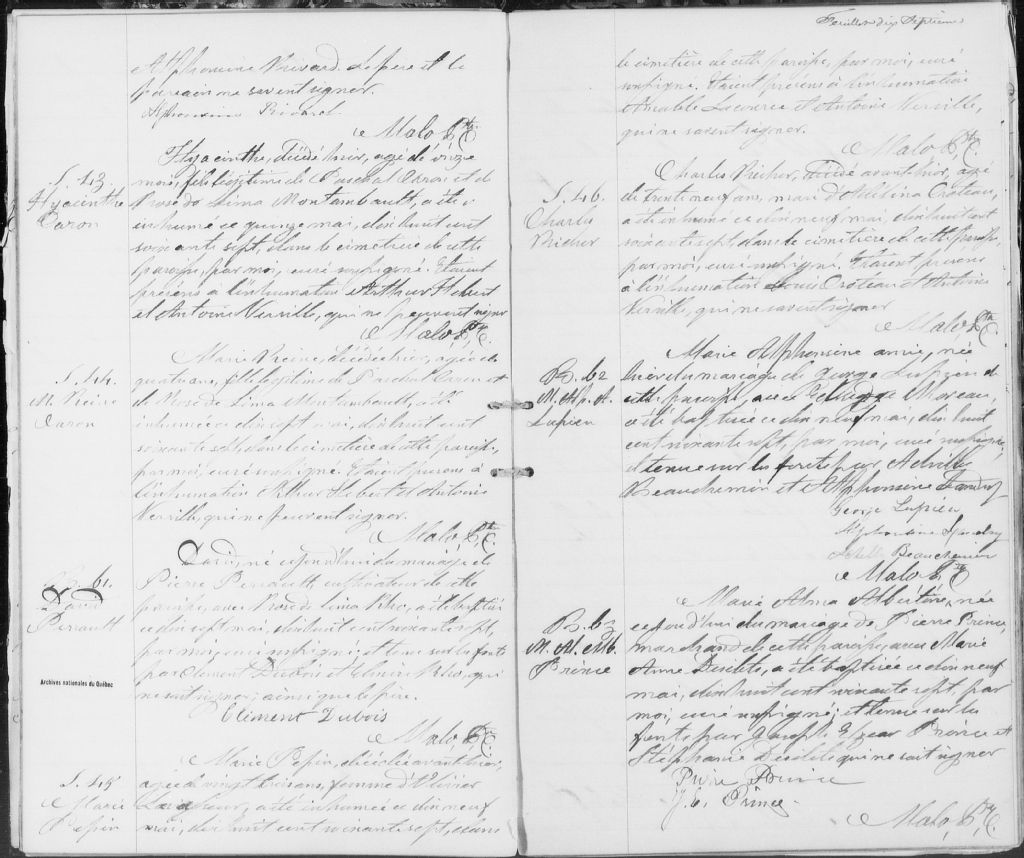 Alphonsine Rivard. Le père et le
parrain ne savent signer.
Alphonsine Rivard
Malo, Ptre C.
S. 43
Hyacinthe
Caron
Hyacinthe, décédé hier, agé de onze
mois, fils légitime de Paschal Caron et de
Rose de Lima Montambault, a été
inhumé ce quinze mai, dix huit cent
soixante sept, dans le cimetière de cette
paroisse, par moi, curé soussigné. Etaient
présens à l'inhumation Arthur Hebert
et Antoine Verville, qui ne peuvent signer
Malo, Ptre C.
S. 44.
M. Reine
Caron
Marie Reine, décédée hier, agée de
quatre ans, fille légitime de Paschal Caron et
de Rose de Lima Montambault, a été
inhumée ce dix sept mai, dix huit cent
soixante sept, dans le cimetière de cette paroisse,
par moi, curé soussigné. Etaient présens à
l'inhumation Arthur Hebert et Antoine
Verville, qui ne peuvent signer.
Malo, Ptre C.
B. 61.
David
Perrault
David, né aujourd'hui du mariage de
Pierre Perrault, cultivateur de cette
paroisse, avec Rose de Lima Rho, a été baptisé
ce dix sept mai, dix huit cent soixante sept,
par moi, curé soussigné; et tenu sur les fonts
par Clement Dubois et Rho, qui
ne sait signer; ainsi que le père.
Climent Dubois
Malo, Ptre C.
Archives nationales du Québec
S. 45
Marie
Pepin
Marie Pepin, décédée avant hier,
agée de vingt trois ans, femme d'
a été inhumée ce dix neuf
mai, dix huit cent soixante sept, dans
Feuillet dix Septième
le cimetière de cette paroisse, par moi, curé
soussigné. Etaient présens à l'inhumation
Amable Lacourse et Antoine Verville,
qui ne savent signer.
Malo, Ptre C.
S. 46.
Charles
Richer
Charles Richer, décédé avant hier, agé
de trente neuf ans, mari d'Adelina Croteau,
a été inhumé ce dix neuf mai, dix huit cent
soixante sept, dans le cimetière de cette paroisse,
par moi, curé soussigné. Etaient présens
à l'inhumation Louis Croteau et Antoine
Verville, qui ne savent signer
Malo, Ptre C.
B. 62
M. Alp. A.
Lupien
Marie Alphonsine annie, née
hier du mariage de George Lupien de
cette paroisse, avec Moreau,
a été baptisée ce dix neuf mai, dix huit
cent soixante sept, par moi, curé soussigné,
et tenue sur les fonts par
Beauchemin et Alphonsine
George Lupien
Alphonsine
Beauchemin
Malo, Ptre C
B. 63
M. Al. Alb.
Prince
Marie Alma Albertine, née
aujourd'hui du mariage de Pierre Prince,
marchand de cette paroisse, avec Marie
Anne Désilets, a été baptisée ce dix neuf
mai, dix huit cent soixante sept, par
moi, curé soussigné; et tenue sur les
fonts par Joseph Elzear Prince et
Stéphanie Désilets qui ne sait signer
Pierre Prince
J. E. Prince
Malo, Ptre C.